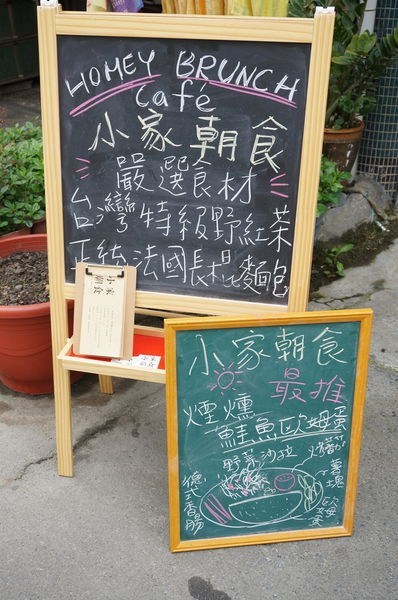 HOMEY BRUNCH
Café
小家朝食
嚴選食材
台灣特級野紅茶
正統法國長棍麵包
小家
朝食
小家朝食
最推
煙燻
鮭魚歐姆蛋
野菜沙拉
德式香腸
薯塊
歐姆蛋